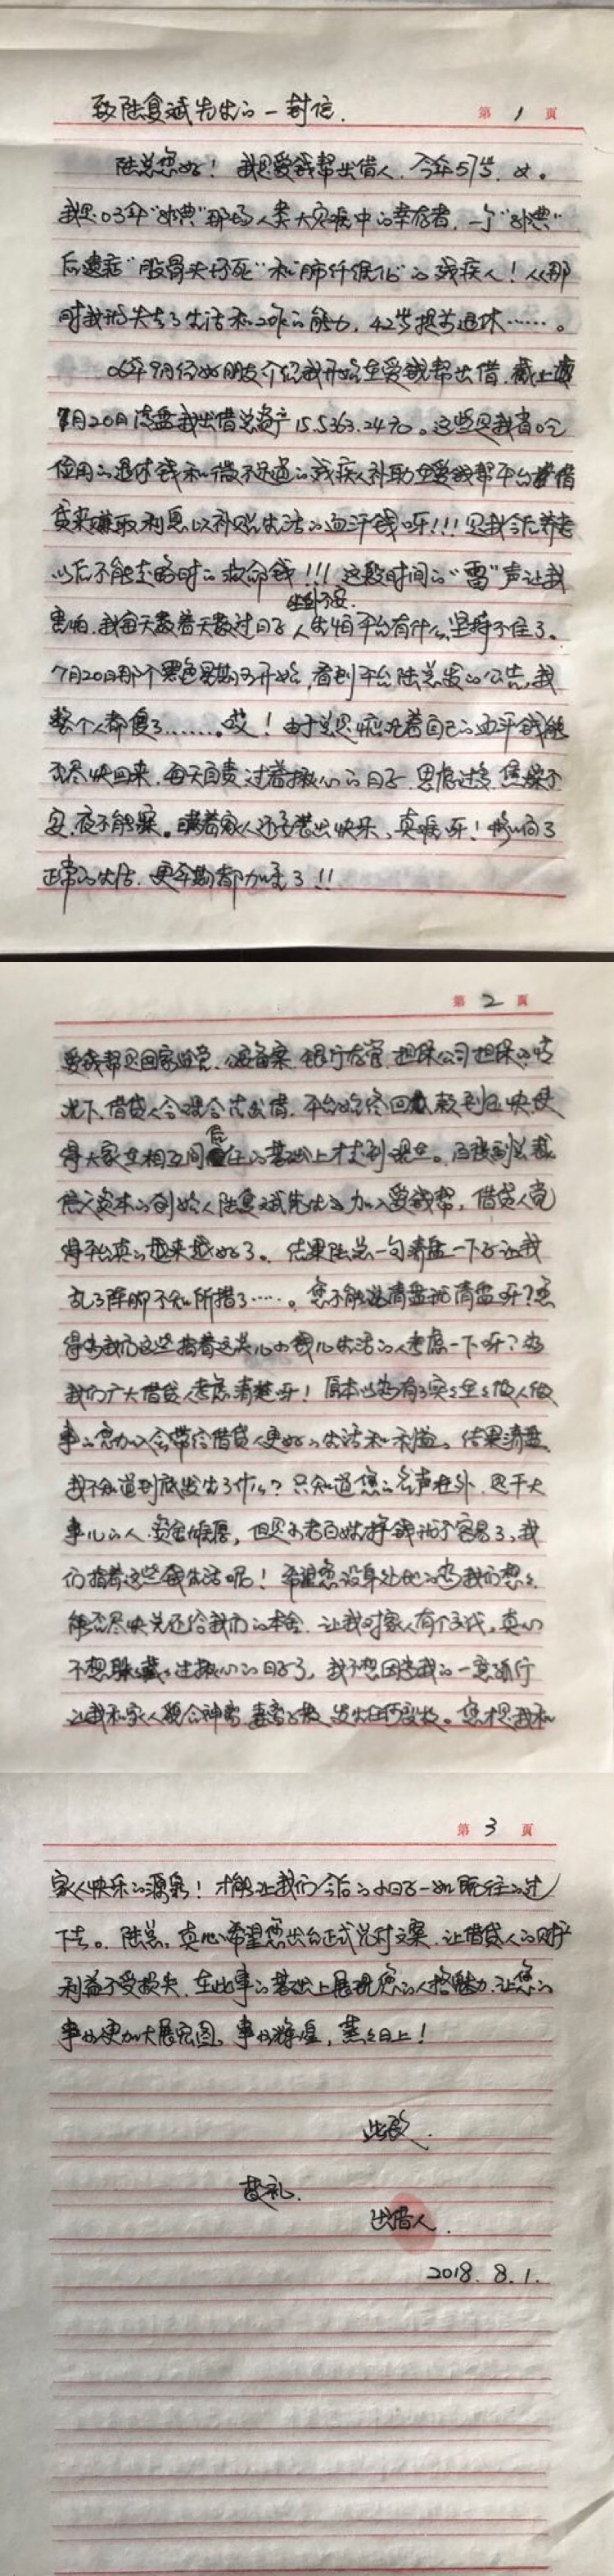 致陆复斌先生的一封信.
第 1 页
陆总您好！我是爱钱帮出借人.今年57岁.女。
我是03年“非典”那场人类大灾难中的幸存者,一个“非典”
后遗症“股骨头坏死”和“肺纤维化”的残疾人！从那
时我就失去了生活和工作的能力,42岁提前退休……。
06年9月经好朋友介绍我开始在爱钱帮出借.截止
7月20日清盘我出借总资产155363.24元。这些是我省吃
俭用的退休钱和微不足道的残疾人补助在爱钱帮平台借
贷来赚取利息以补贴生活的血汗钱呀!!!是我今后养老
以后不能走路时的救命钱!!!这段时间的“雷”声让我
坐卧不安.
害怕.我每天数着天数过日子.人生怕平台有什么坚持不住了。
7月20日那个黑色星期五开始,看到平台陆总发的公告,我
整个人都傻了……。哎！由于总思虑着自己的血汗钱能
否尽快回来.每天自责过着揪心的日子.思虑过多.焦燥不
安.夜不能寐。瞒着家人还要装出快乐、真难呀！影响了
正常的生活.更年期都加重了!!
第 2 页
爱钱帮是国家监管.公安备案.银行存管.担保公司担保的情
况下.借贷人合理合法出借.平台始终回款到位快使
得大家在相互间信任的基础上才走到现在。后
信义资本的创始人陆复斌先生加入爱钱帮,借贷人觉
得平台真的越来越好了。结果陆总一句清盘一下子让我
乱了阵脚不知所措了……。您不能说清盘就清盘呀?您
得为我们这些指着这点儿小钱儿生活的人考虑一下呀?为
我们广大借贷人考虑清楚呀！原本以为有了实实在在做人做
事的您加入会带给借贷人更好的生活和利益。结果清盘
我不知道到底发生了什么?只知道您的名声在外.是干大
事儿的人.资金雄厚,但是小老百姓挣钱就不容易了,我
们指着这些钱生活呢！希望您设身处地的为我们想想
能否尽快先还给我们的本金.让我对家人有个交代,真的
不想躲躲藏藏过揪心的日子了,我不想因为我的一意孤行
让我和家人貌合神离.妻离子散.发生任何变故。您才是我和
第 3 页
家人快乐的源泉！才能让我们今后的小日子一如既往的过
下去。陆总.真心希望您出台正式兑付文案.让借贷人的财产
利益不受损失.在此事的基础上展现您的人格魅力.让您的
事业更加大展宏图、事业辉煌,蒸蒸日上！
此致.
敬礼.
出借人.
2018.8.1.